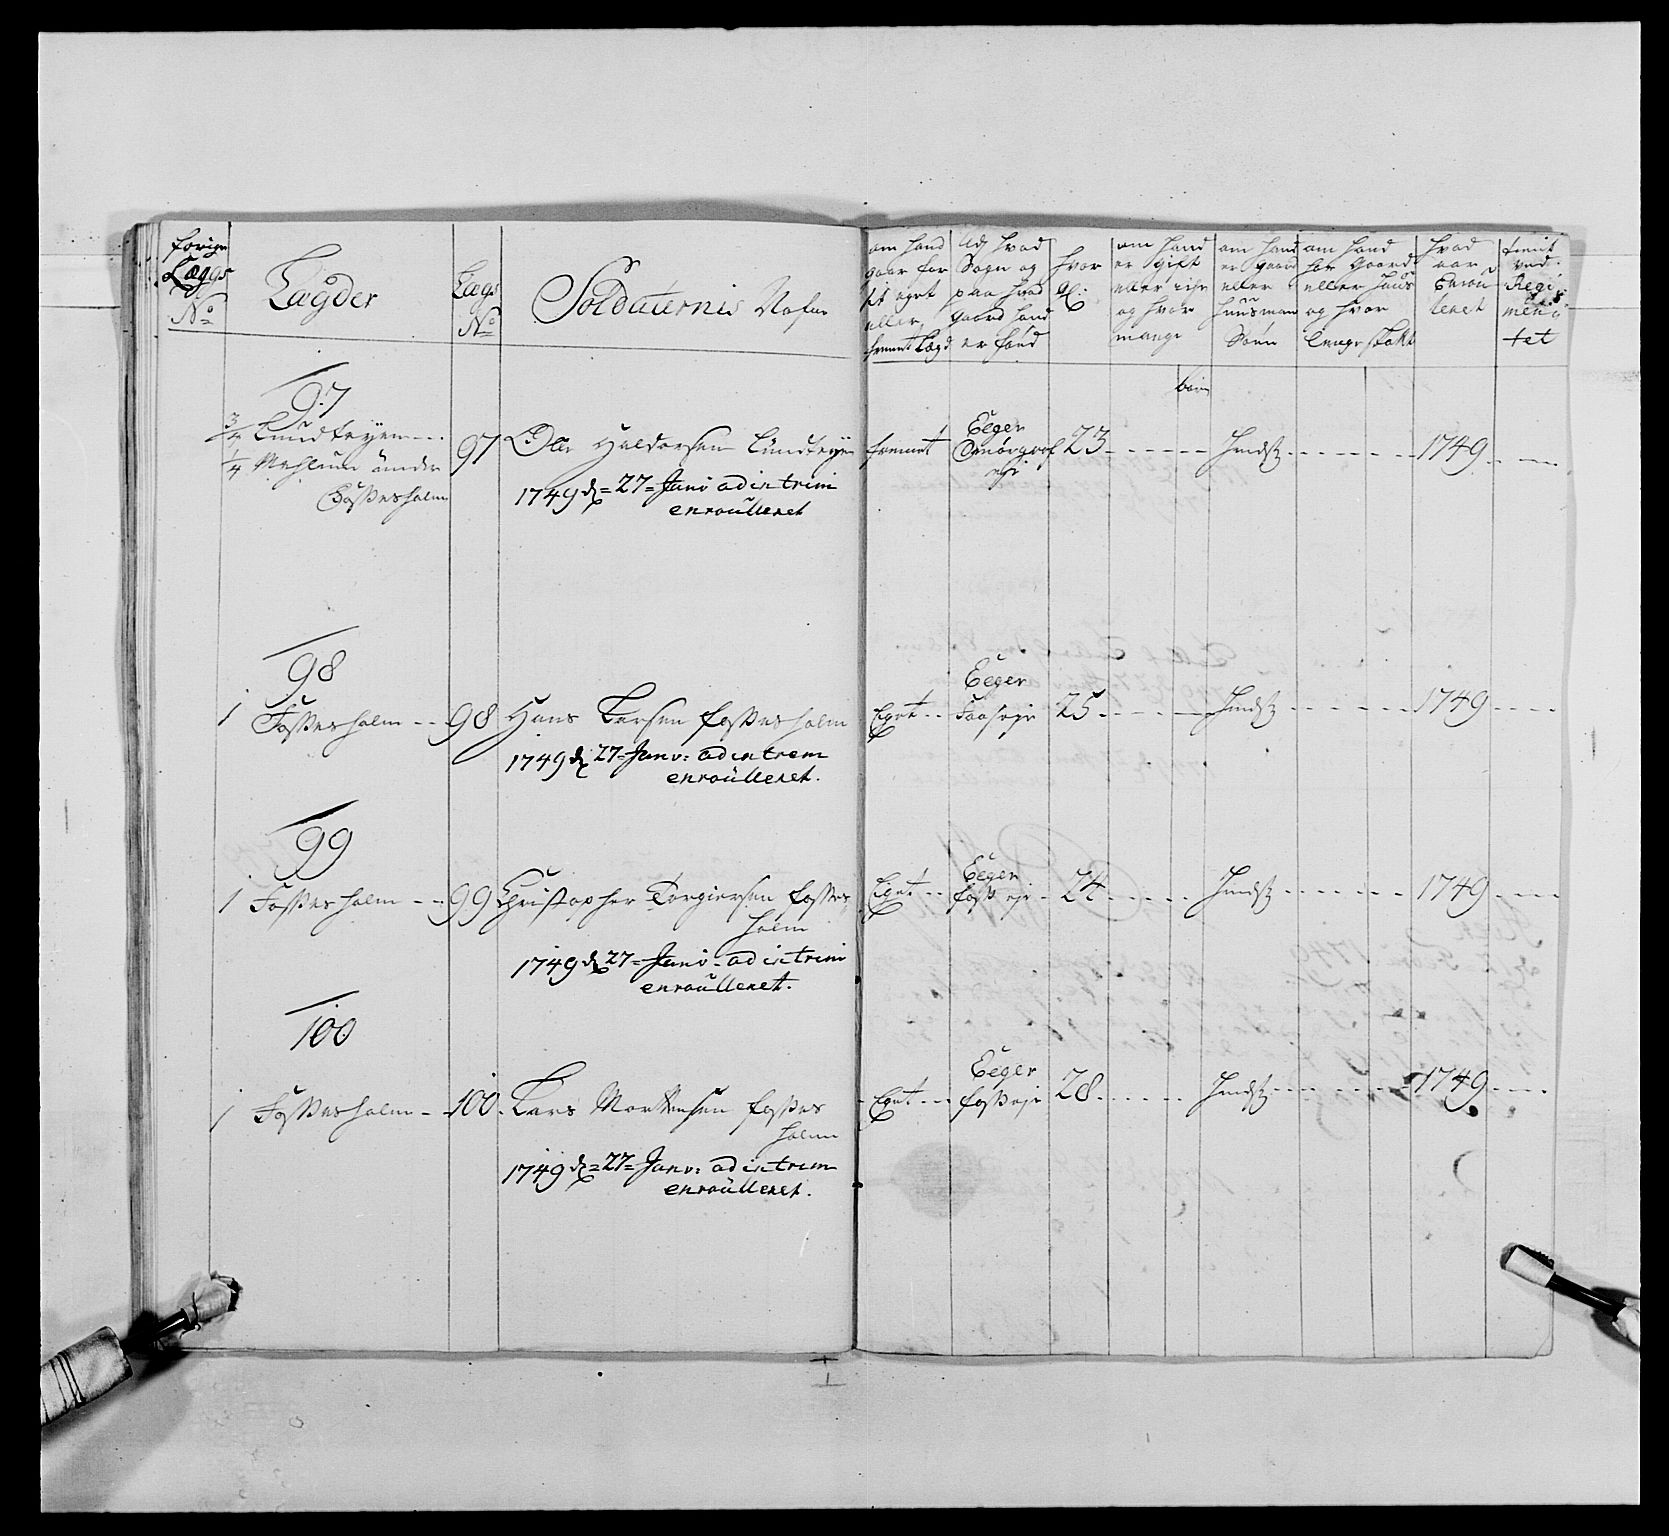 forige
Læggs
No
Lægder
Lægs
No
Soldaternis Nafne
om hand
gaar for
sit eget
eller
fremt Lægd
Udj hvad
Sogn og
paa hvad
gaard hand
er fød
hvor
gl:
om hand
er gift
eller eij
og hvor
mange
børn
om hand
er gaard
eller
huusmand
Søn
om hand
har gaard
eller huus
og hvor
lenge
hvad
aar
Enrou
leret
tient
ved
Regi
men
tet
97
3/4 Lundteyen
1/4 under
Fossesholm
97 Ole Haldorsen Lundteyen
1749 d = 27 = Janv ad intrim
enroulleret
fremt
Eeger
23 Indst 1749
98
1 Fossesholm 98 Hans Larsen Fossesholm
1749 d 27 = Janv: ad intrem
enroulleret.
Eget
Eeger
25 Indst 1749
99
1 Fossesholm 99 Christopher Torgiersen Fosses
holm
1749 d 27 = Janv - ad intrim
enroulleret.
Eget
Eeger
foss eje 24 Indst 1749
100
1 Fossesholm 100. Lars Mortensen Fosses
holm
1749 d = 27 = Janv: ad intrem
enroulleret.
Eget
Eeger
foss eje 28 Indst 1749